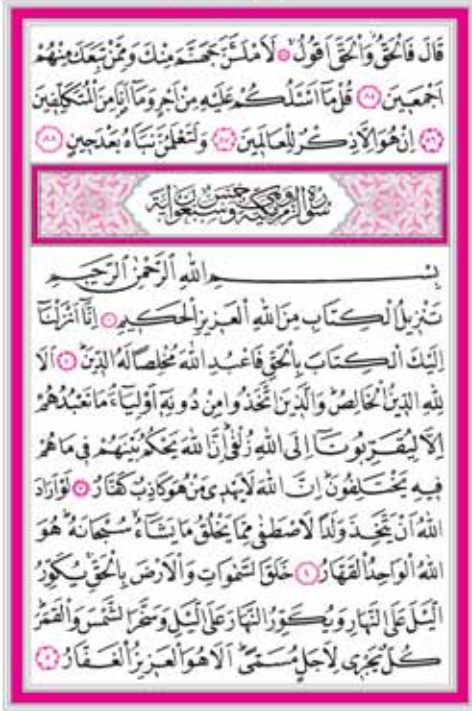 قَالَ فَالْحَقُّ وَالْحَقَّ اَقُولُ ۝ لَاَمْلَـَٔنَّ جَهَنَّمَ مِنْكَ وَمِمَّنْ تَبِعَكَ مِنْهُمْ
اَجْمَعِينَ ﴿٨٥﴾ قُلْ مَٓا اَسْـَٔلُكُمْ عَلَيْهِ مِنْ اَجْرٍ وَمَٓا اَنَا۬ مِنَ الْمُتَكَلِّفِينَ
﴿٨٦﴾ اِنْ هُوَ اِلَّا ذِكْرٌ لِلْعَالَمِينَ ﴿٨٧﴾ وَلَتَعْلَمُنَّ نَبَاَهُ بَعْدَ حِينٍ ﴿٨٨﴾
سورة الزمر مكية وهى خمس وسبعون اية
بِسْمِ اللهِ الرَّحْمٰنِ الرَّحِيمِ
تَنْزِيلُ الْكِتَابِ مِنَ اللهِ الْعَزِيزِ الْحَكِيمِ ﴿١﴾ اِنَّٓا اَنْزَلْنَٓا
اِلَيْكَ الْكِتَابَ بِالْحَقِّ فَاعْبُدِ اللهَ مُخْلِصًا لَهُ الدِّينَ ﴿٢﴾ اَلَا
لِلهِ الدِّينُ الْخَالِصُ وَالَّذِينَ اتَّخَذُوا مِنْ دُونِهِٓ اَوْلِيَٓاءَ مَا نَعْبُدُهُمْ
اِلَّا لِيُقَرِّبُونَٓا اِلَى اللهِ زُلْفٰى اِنَّ اللهَ يَحْكُمُ بَيْنَهُمْ فِي مَا هُمْ
فِيهِ يَخْتَلِفُونَ اِنَّ اللهَ لَا يَهْدِي مَنْ هُوَ كَاذِبٌ كَفَّارٌ ﴿٣﴾ لَوْ اَرَادَ
اللهُ اَنْ يَتَّخِذَ وَلَدًا لَاصْطَفٰى مِمَّا يَخْلُقُ مَا يَشَٓاءُ سُبْحَانَهُ هُوَ
اللهُ الْوَاحِدُ الْقَهَّارُ ﴿٤﴾ خَلَقَ السَّمٰوَاتِ وَالْاَرْضَ بِالْحَقِّ يُكَوِّرُ
الَّيْلَ عَلَى النَّهَارِ وَيُكَوِّرُ النَّهَارَ عَلَى الَّيْلِ وَسَخَّرَ الشَّمْسَ وَالْقَمَرَ
كُلٌّ يَجْرِي لِاَجَلٍ مُسَمًّى اَلَا هُوَ الْعَزِيزُ الْغَفَّارُ ﴿٥﴾